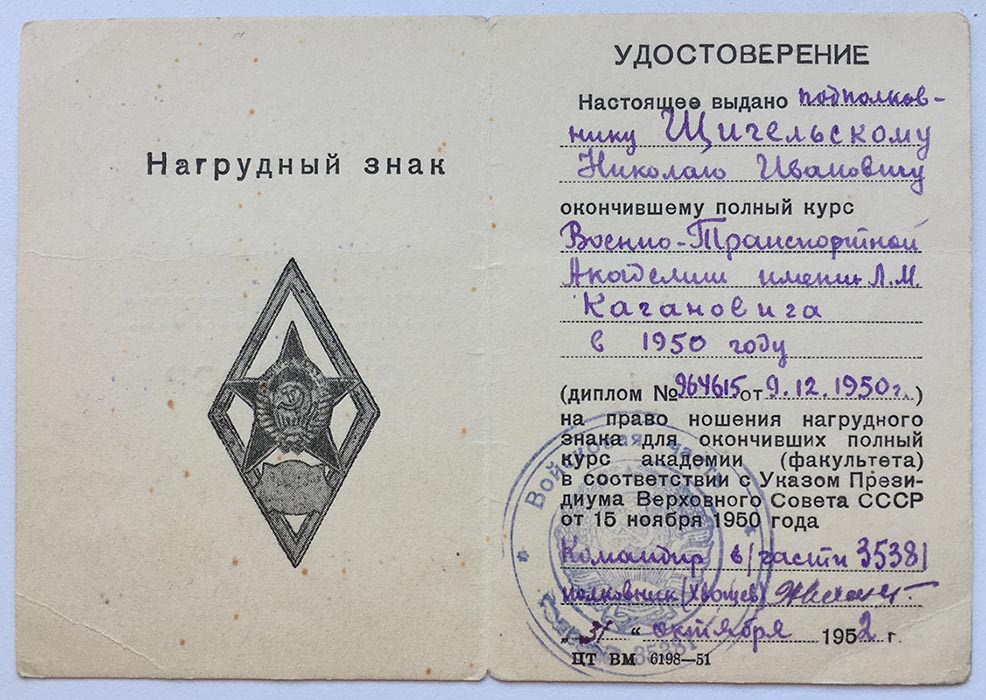 Нагрудный знак
УДОСТОВЕРЕНИЕ
Настоящее выдано подполков-
нику Щигельскому
Николаю Ивановичу
окончившему полный курс
Военно-Транспортной
Академии имени Л.М.
Кагановича
в 1950 году
(диплом № 964615 от 9.12.1950г.)
на право ношения нагрудного
знака для окончивших полный
курс академии (факультета)
в соответствии с Указом Прези-
диума Верховного Совета СССР
от 15 ноября 1950 года
Командир в/части 35381
полковник (Хвощев)
„31" октября 1952 г.
ЦТ ВМ 6198—51
Войсковая часть
35381